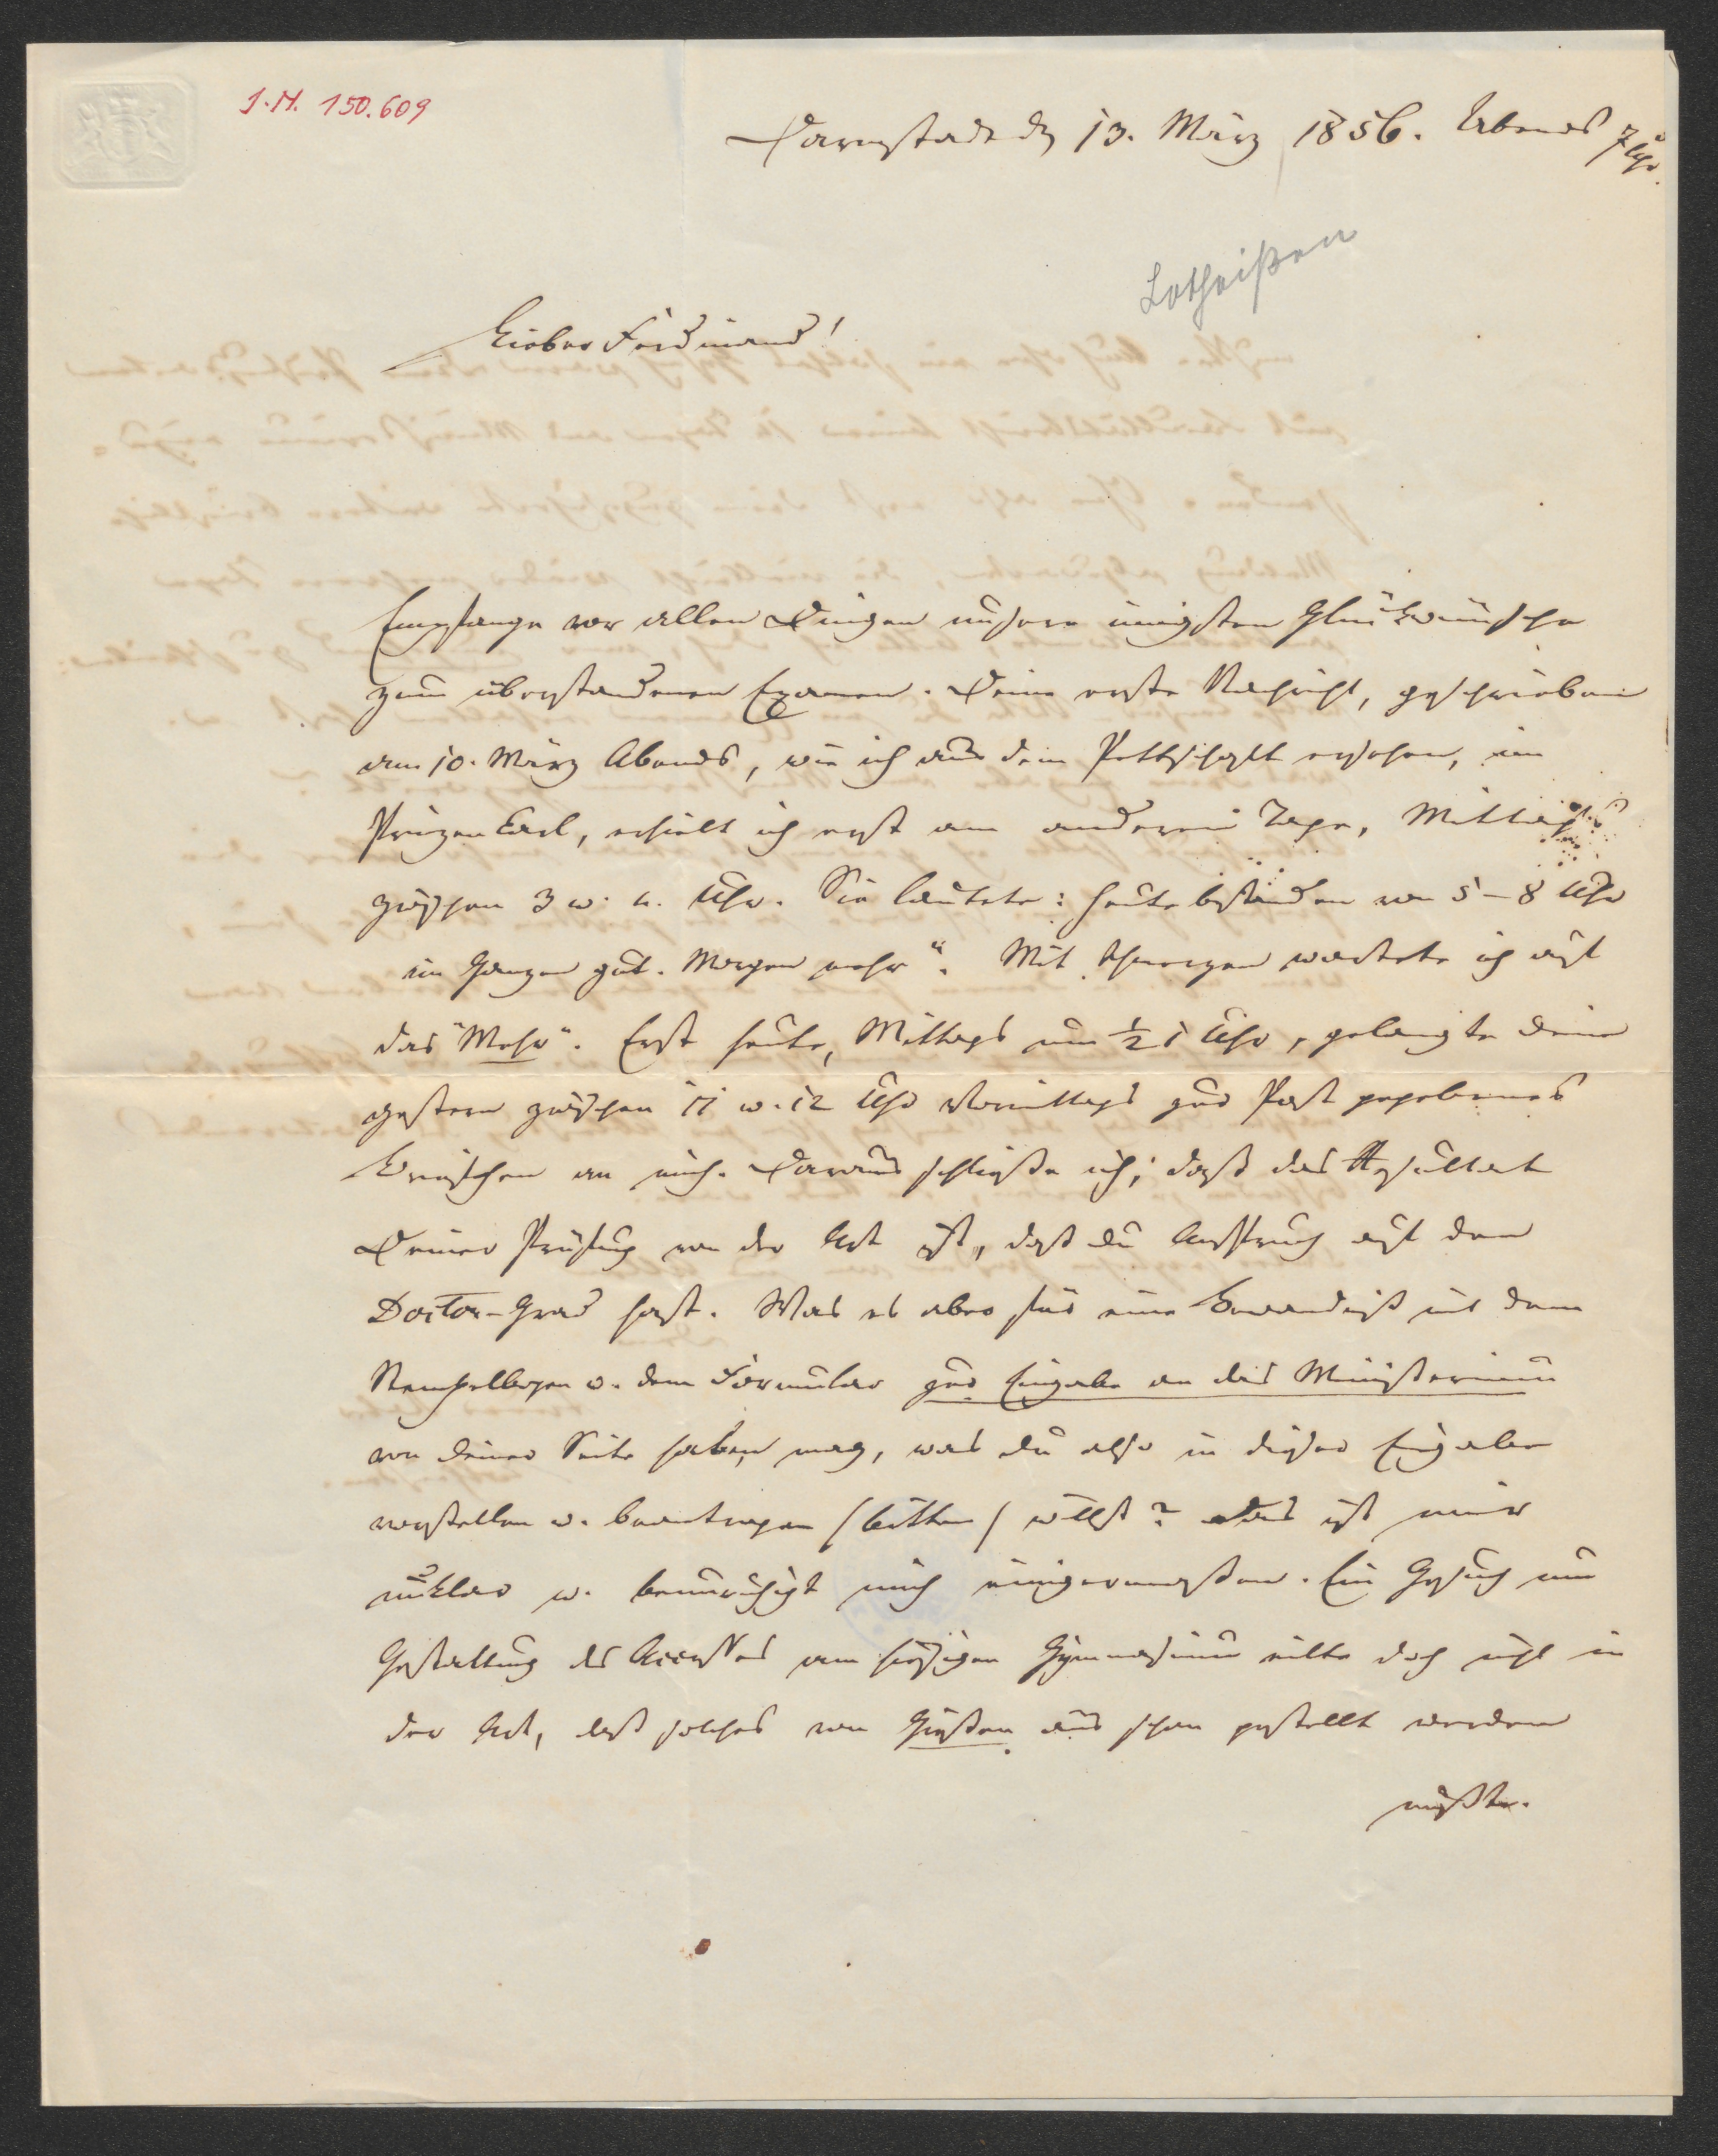 I.N. 150.609
Darmstadt d. 13. März 1856. Abends 7 Uhr.
Lotheißen
Lieber Ferdinand!
Empfange vor allen Dingen unsere innigsten Glückwünsche
zum überstandenen Examen. Deine erste Nachricht, geschrieben
am 10. März Abends, wie ich aus dem Pettschaft ersehen, im
Prinzen Carl, erhielt ich erst am anderen Tage, Mittags
zwischen 3 u. 4. Uhr. Sie lautete: heute bestanden von 5–8 Uhr
im Ganzen gut. Morgen mehr“. Mit Schmerzen wartete ich auf
das "Mehr“. Erst heute, Mittags um ½ 1 Uhr, gelangte deine
gestern zwischen 11 u. 12 Uhr Vormittags zur Post gegebenes
Briefchen an mich. Daraus schließe ich, daß das Resultat
Deiner Prüfung von der Art ist, daß du Anspruch auf den
Doctor-Grad hast. Was es aber für eine Bewandniß mit dem
Stempelbogen u. dem Formular zur Eingabe an das Ministerium
von deiner Seite haben mag, was du also in dieser Eingabe
vorstellen u. beantragen (bitten) willst? das ist mir
unklar u. beunruhigt mich einigermaßen. Ein Gesuch um
Gestattung des Accesses am hiesigen Gymnasium eilte doch nicht in
der Art, daß solches von Gießen aus schon gestellt werden
müßte.